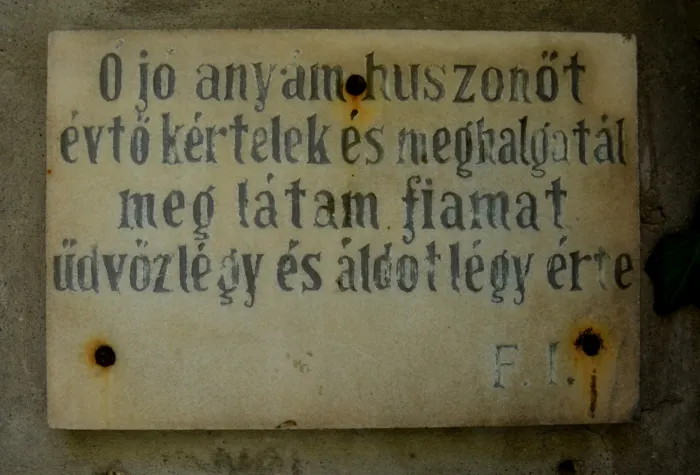 Ó jó anyám huszonöt
évtő kértelek és meghalgatál
meg látam fiamat
üdvözlégy és áldot légy érte
F. I.